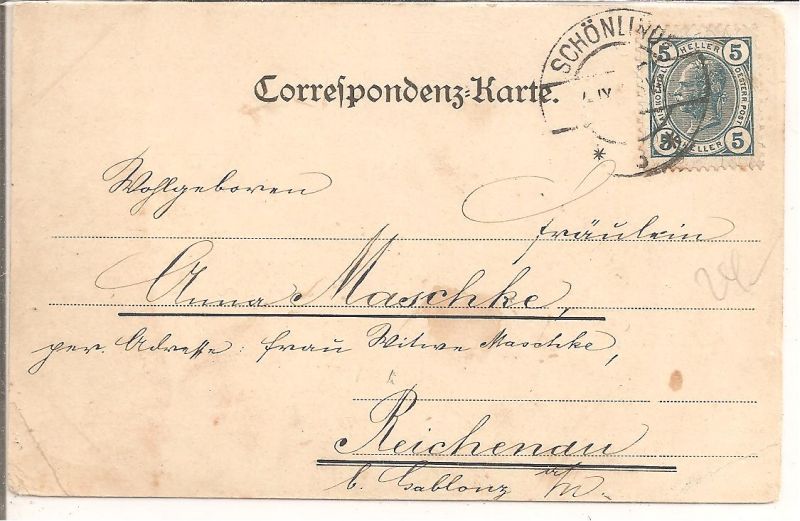 SCHÖNLIND
5 HELLER 5
OESTERR. POST
5 HELLER 5
IV
Correspondenz-Karte.
Wohlgeboren
Fräulein
Anna Maschke,
per. Adresse: Frau Witwe Maschke,
Reichenau
b. Gablonz a/N.